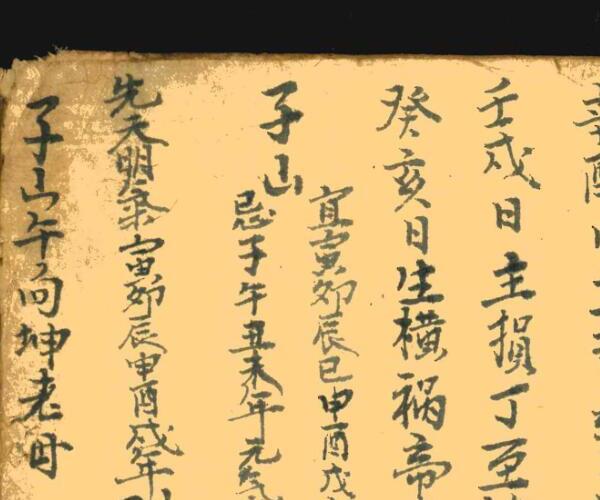 辛酉日
壬戌日主損丁至
癸亥日生橫祸啇
子山
宜寅卯辰巳申酉戌
忌子午丑未年元
先天明 寅卯辰申酉戌年
子山午向坤老母